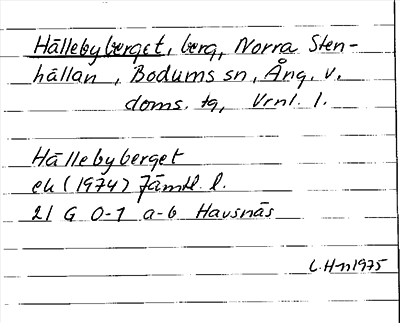 Hällebyberget, berg, Norra Sten-
hällan, Bodums sn, Ång. v.
doms. tg, Vrnl. l.
Hällebyberget
ek (1974) Jämtl. l.
21 G 0-1 a-b Havsnäs
L.H-n 1975